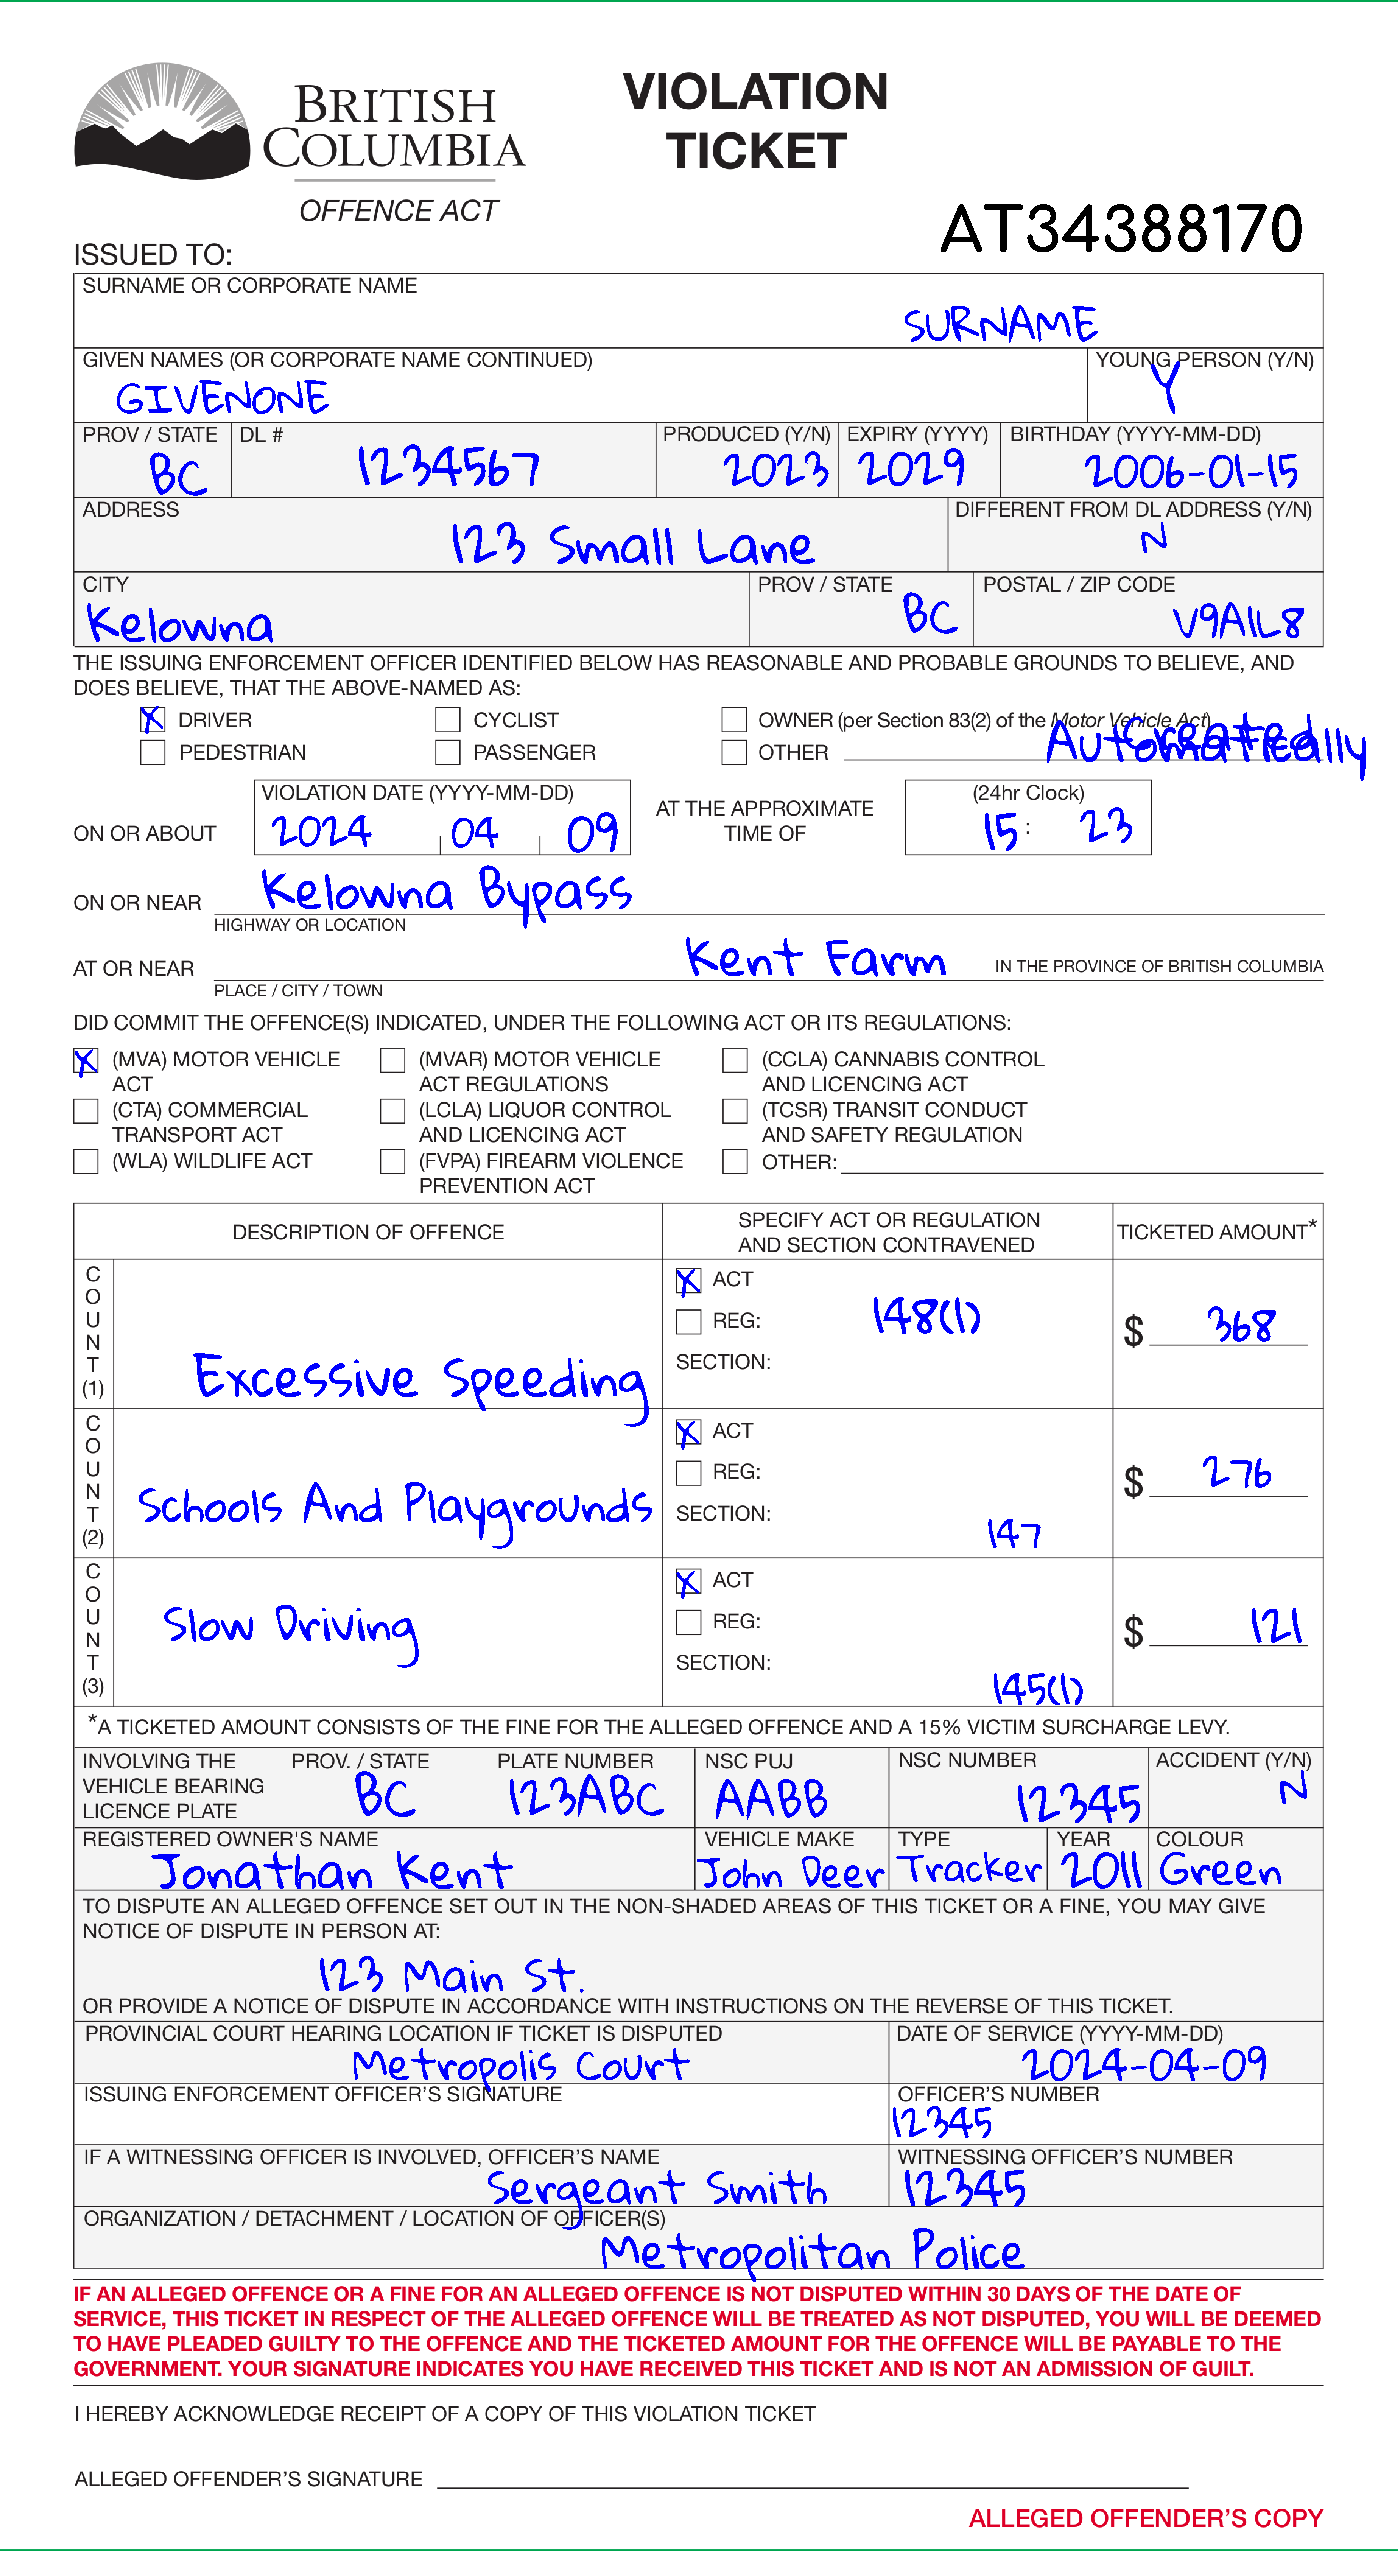 BRITISH
COLUMBIA
OFFENCE ACT
VIOLATION
TICKET
AT34388170
ISSUED TO:
SURNAME OR CORPORATE NAME
SURNAME
GIVEN NAMES (OR CORPORATE NAME CONTINUED) YOUNG PERSON (Y/N)
GIVENONE Y
PROV / STATE DL # PRODUCED (Y/N) EXPIRY (YYYY) BIRTHDAY (YYYY-MM-DD)
BC 1234567 2023 2029 2006-01-15
ADDRESS DIFFERENT FROM DL ADDRESS (Y/N)
123 Small Lane N
CITY PROV / STATE POSTAL / ZIP CODE
Kelowna BC V9A1L8
THE ISSUING ENFORCEMENT OFFICER IDENTIFIED BELOW HAS REASONABLE AND PROBABLE GROUNDS TO BELIEVE, AND
DOES BELIEVE, THAT THE ABOVE-NAMED AS:
X DRIVER CYCLIST OWNER (per Section 83(2) of the Motor Vehicle Act)
PEDESTRIAN PASSENGER OTHER Created Automatically
VIOLATION DATE (YYYY-MM-DD) (24hr Clock)
ON OR ABOUT 2024 04 09 AT THE APPROXIMATE
TIME OF 15 : 23
ON OR NEAR Kelowna Bypass
HIGHWAY OR LOCATION
AT OR NEAR Kent Farm IN THE PROVINCE OF BRITISH COLUMBIA
PLACE / CITY / TOWN
DID COMMIT THE OFFENCE(S) INDICATED, UNDER THE FOLLOWING ACT OR ITS REGULATIONS:
X (MVA) MOTOR VEHICLE (MVAR) MOTOR VEHICLE (CCLA) CANNABIS CONTROL
ACT ACT REGULATIONS AND LICENCING ACT
(CTA) COMMERCIAL (LCLA) LIQUOR CONTROL (TCSR) TRANSIT CONDUCT
TRANSPORT ACT AND LICENCING ACT AND SAFETY REGULATION
(WLA) WILDLIFE ACT (FVPA) FIREARM VIOLENCE OTHER:
PREVENTION ACT
DESCRIPTION OF OFFENCE SPECIFY ACT OR REGULATION
AND SECTION CONTRAVENED TICKETED AMOUNT*
COUNT (1) Excessive Speeding
X ACT
REG: 148(1)
SECTION:
$ 368
COUNT (2) Schools And Playgrounds
X ACT
REG:
SECTION: 147
$ 276
COUNT (3) Slow Driving
X ACT
REG:
SECTION: 145(1)
$ 121
*A TICKETED AMOUNT CONSISTS OF THE FINE FOR THE ALLEGED OFFENCE AND A 15% VICTIM SURCHARGE LEVY.
INVOLVING THE
VEHICLE BEARING
LICENCE PLATE
PROV. / STATE PLATE NUMBER NSC PUJ NSC NUMBER ACCIDENT (Y/N)
BC 123ABC AABB 12345 N
REGISTERED OWNER'S NAME VEHICLE MAKE TYPE YEAR COLOUR
Jonathan Kent John Deer Tracker 2011 Green
TO DISPUTE AN ALLEGED OFFENCE SET OUT IN THE NON-SHADED AREAS OF THIS TICKET OR A FINE, YOU MAY GIVE
NOTICE OF DISPUTE IN PERSON AT:
123 Main St.
OR PROVIDE A NOTICE OF DISPUTE IN ACCORDANCE WITH INSTRUCTIONS ON THE REVERSE OF THIS TICKET.
PROVINCIAL COURT HEARING LOCATION IF TICKET IS DISPUTED DATE OF SERVICE (YYYY-MM-DD)
Metropolis Court 2024-04-09
ISSUING ENFORCEMENT OFFICER'S SIGNATURE OFFICER'S NUMBER
12345
IF A WITNESSING OFFICER IS INVOLVED, OFFICER'S NAME WITNESSING OFFICER'S NUMBER
Sergeant Smith 12345
ORGANIZATION / DETACHMENT / LOCATION OF OFFICER(S)
Metropolitan Police
IF AN ALLEGED OFFENCE OR A FINE FOR AN ALLEGED OFFENCE IS NOT DISPUTED WITHIN 30 DAYS OF THE DATE OF
SERVICE, THIS TICKET IN RESPECT OF THE ALLEGED OFFENCE WILL BE TREATED AS NOT DISPUTED, YOU WILL BE DEEMED
TO HAVE PLEADED GUILTY TO THE OFFENCE AND THE TICKETED AMOUNT FOR THE OFFENCE WILL BE PAYABLE TO THE
GOVERNMENT. YOUR SIGNATURE INDICATES YOU HAVE RECEIVED THIS TICKET AND IS NOT AN ADMISSION OF GUILT.
I HEREBY ACKNOWLEDGE RECEIPT OF A COPY OF THIS VIOLATION TICKET
ALLEGED OFFENDER'S SIGNATURE
ALLEGED OFFENDER'S COPY